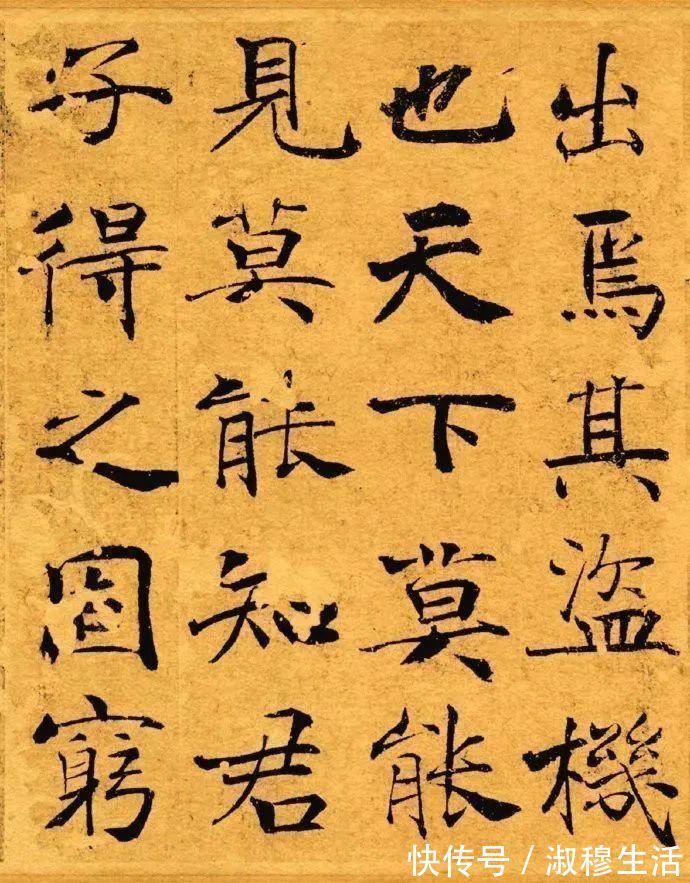 出焉其盜機
也天下莫能
見莫能知君
子得之固窮
快传号/淑穆生活